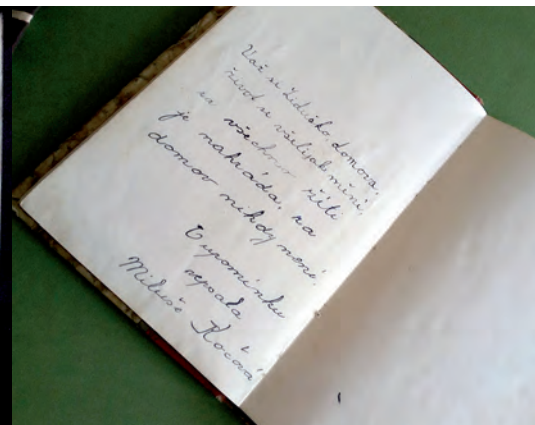 Važ si Lidiško, domova,
život se všelijak mění,
za všechno zříti
je náhrada, za
domov nikdy není.
V upomínku
vepsala
Miluše Kočová